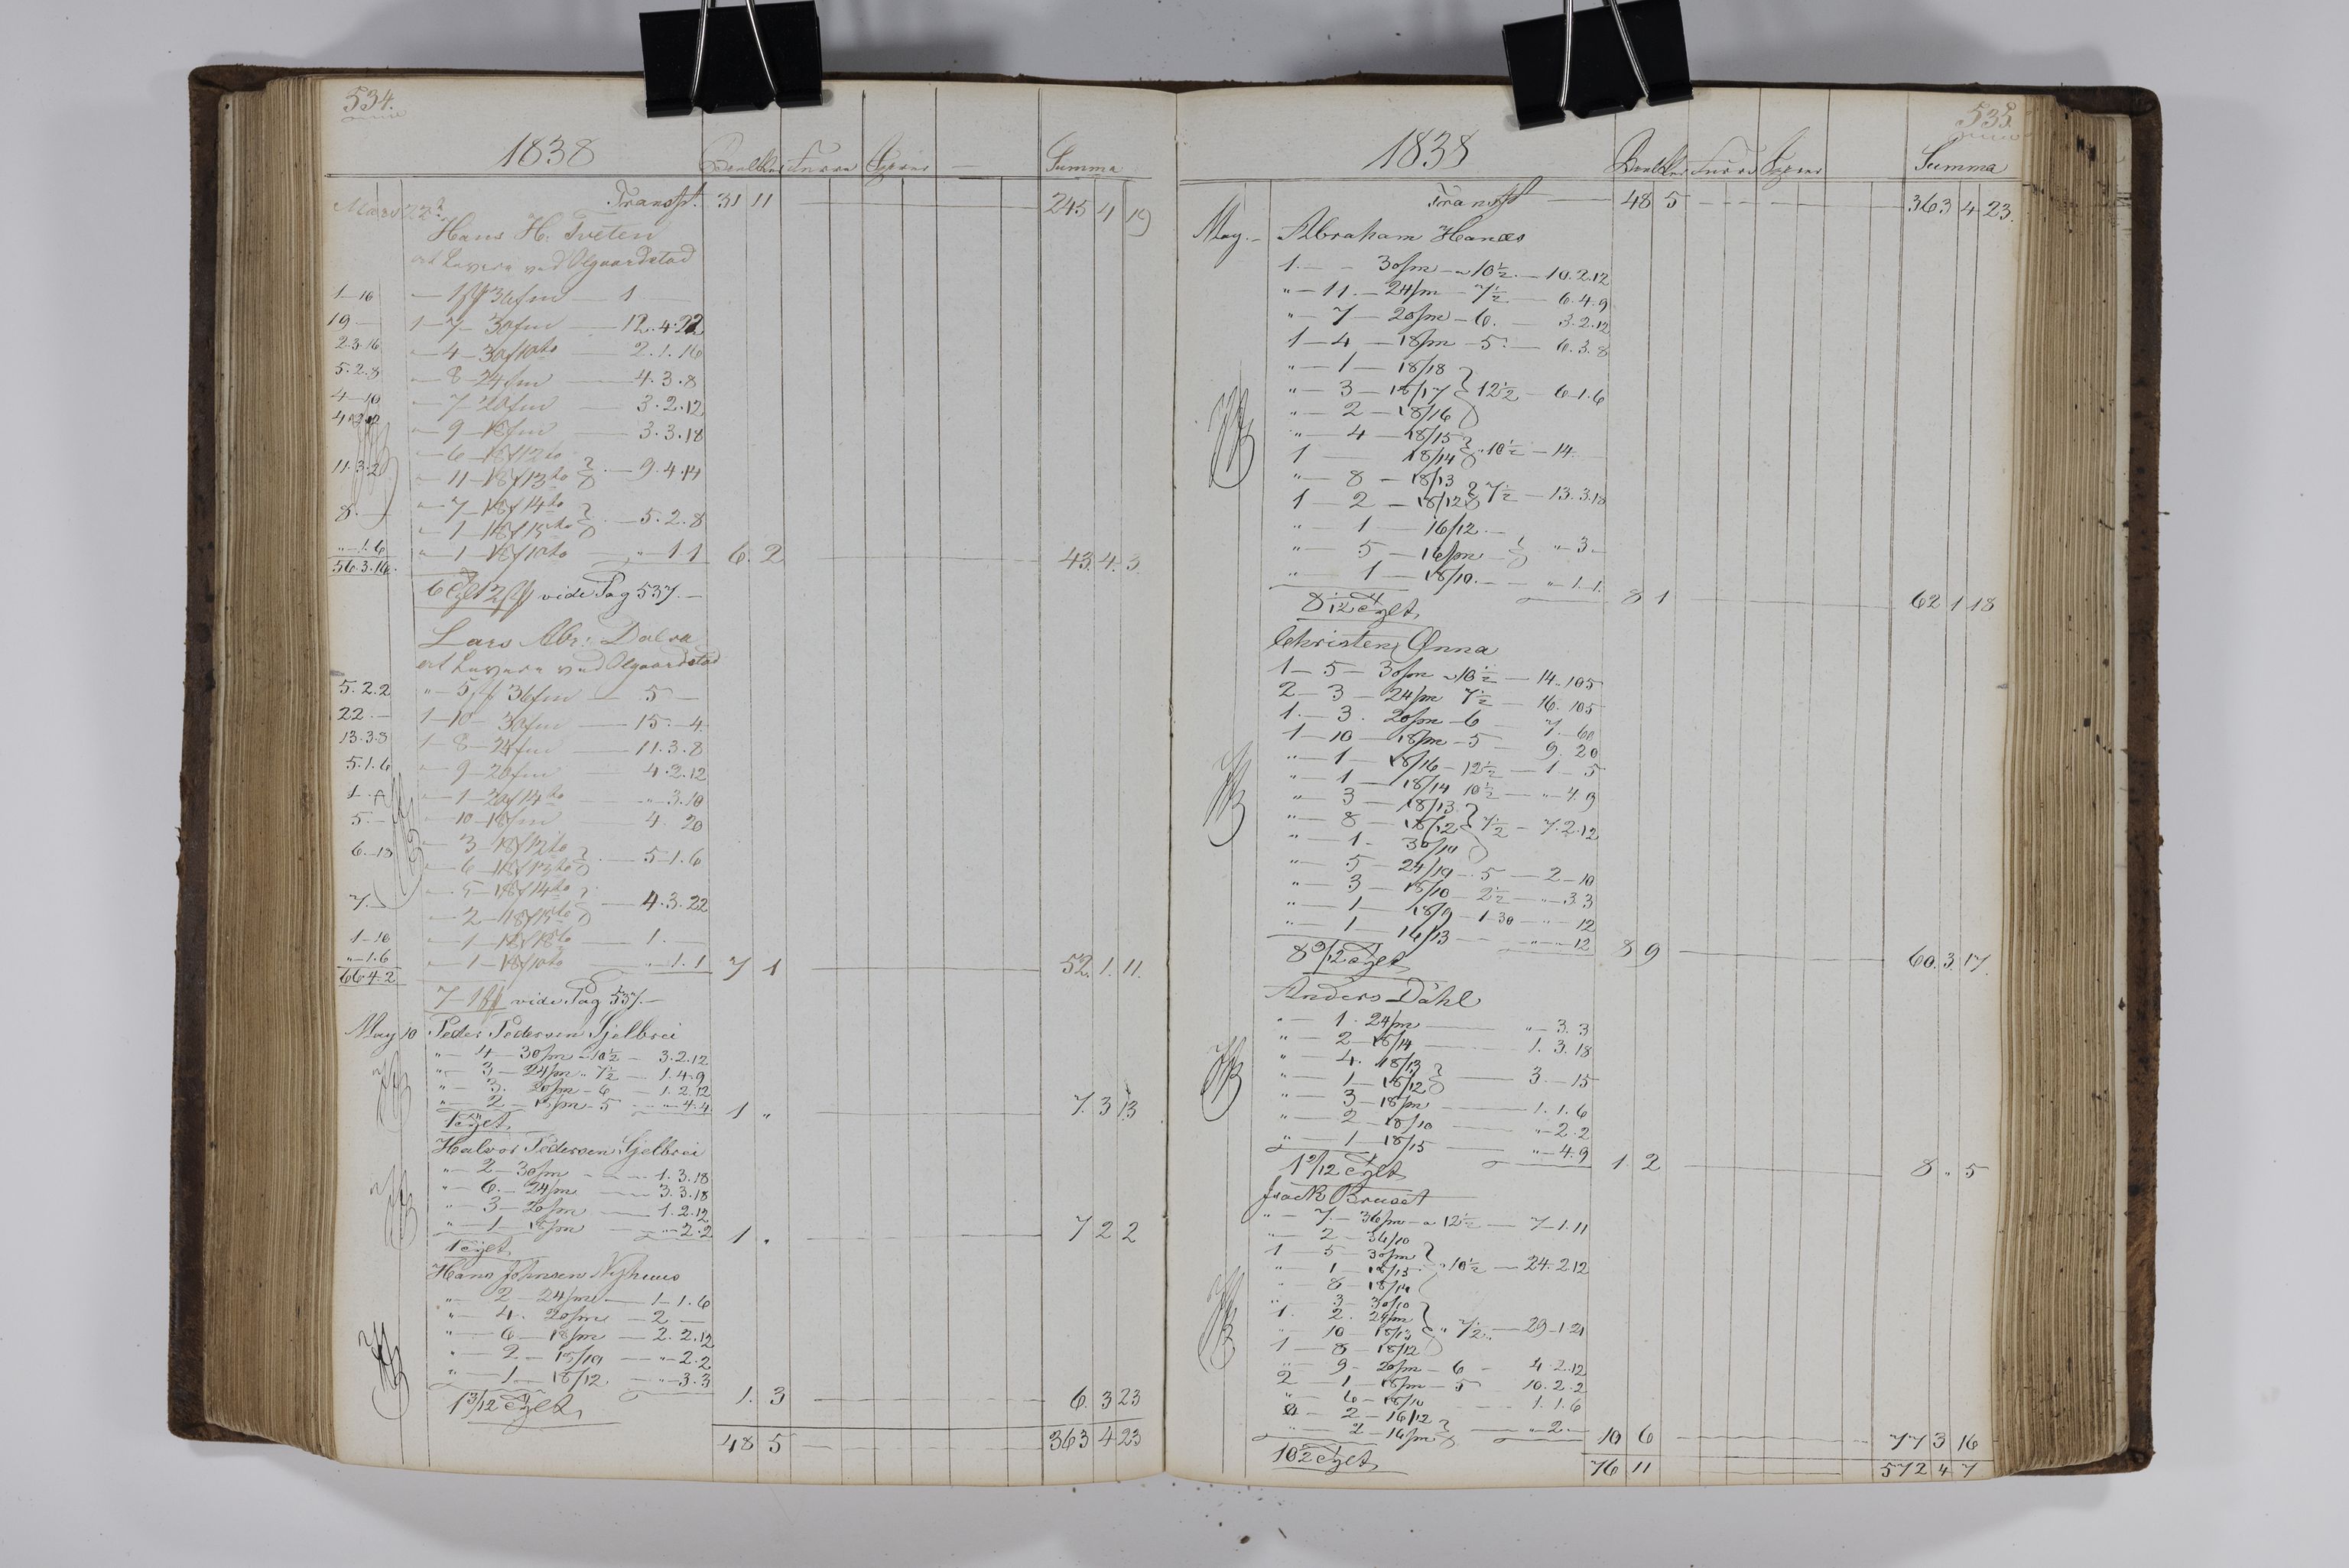 534.
1838 Summa
Transp. 31 11 245 4 19
Mars 22
Hans H. Tveten
at Levere ved Olgaardstad
1-16 - 1 36fm - 1
19 - 1-7- 30fm - 12.4.22
2.3.16 - 4-30/10to - 2.1.16
5.2.8 - 8-24fm - 4.3.8
4-10 - 7-20fm - 3.2.12
- 9-18fm - 3.3.18
- 6-18/12to
11.3.2 - 11-18/13to - 9.4.14
- 7-18/14to
8.- - 1-18/15to - 5.2.8
"-1.6 "-1-18/10to - "-1.1 6.2 43.4.3
56.3.16.
6 vide Pag 537.-
Lars Abr: Dalva
at Levere ved Olgaardstad
5.2.2 "-5 36fm - 5 -
22.- 1-10- 30fm - 15.-4.
13.3.8 1-8-24fm - 11.3.8
5.1.6 "-9-20fm - 4.2.12
"-1-20/14to - "-3.10
5.- "-10-18fm - 4. 20
- 3-18/12to
6.-13 - 6-18/13to - 5-1.6
- 5-18/14to
7.- - 2-18/15to - 4.3.22
1-16 - 1-18/18to - 1.-
"-1.6 - 1-18/10to - "-1.1 7 1 52.1.11.
66.4.2
7-1 vide Pag 537.-
May 10 Peder Pedersen Gjelbrei
"- 4-30fm -10½ - 3.2.12
"- 3-24fm " 7½ - 1.4.9
"- 3. 20fm - 6 - 1.2.12
"- 2-18fm - 5 - "-4.4. 1 " 7.3.13
1 Tylt
Halvor Pedersen Gjelbrei
"- 2-30fm - 1.3.18
"- 6.-24fm - 3.3.18
"- 3-20fm - 1.2.12
"- 1-18fm - "-2.2 1 . 7 2 2
1 Tylt
Hans Johnsen Nyhuus
"- 2-24fm - 1-1.6
"- 4. 20fm - 2 -
"- 6-18fm - 2.2.12
"- 2-18/10 - "-2.2
"- 1-18/12. - "-3.3
1 3/12 Tylt 1. 3 6. 3 23
48 5 363 4 23
535.
1838 Summa
Transp 48 5 363 4 23.
May.- Abraham Hanaas
1.- - 30fm - a 10½ - 10.2.12
"- 11.-24fm - 7½ - 6.4.9
"- 7-20fm - 6. - 3.2.12
1-4-18fm - 5 - 6.3.8
"- 1-18/18
"- 3-18/17 12½ - 6-1.6
"- 2-18/16
"- 4-18/15
1 - 18/14 10½ - 14.
"- 8-18/13
1-2-18/12 7½ - 13.3.18
"- 1-16/12.-
"- 5-16fm - "-3-
"- 1-18/10.- - "-1.1. 8 1 62 1 18
8 1/12 Tylt
Christen Ønna
1-5-30fm a 10½ - 14. 105
2-3-24fm 7½ - 16. 105
1.-3. 20fm - 6 - 7.-60
1-10-18fm - 5 - 9. 20
"- 1-18/16-12½ - 1-5
"- 1-18/14 10½ - "-4.9
"- 3-18/13
"- 8-18/12 7½ - 7.2.12
"- 1-30/10
"- 5-24/10 - 5 - 2-10
"- 3-18/10-2½ - "-3.3
"- 1-18/9-1-30 - "-12
"- 1-14/13 - "-12 8 9 60.3.17.
8 9/12 Tylt
Anders Dahl
"- 1-24fm - "-3.3
"- 2-18/14 - 1.3.18
" 4. 18/13
"- 1-18/12 - 3-15
"- 3-18fm - 1.1.6
"- 2-18/10 - "-2.2
"- 1-18/15 - "-4.9 1. 2 8 " 5
1 2/12 Tylt
Isack Bruset
"- 7.-36fm - a 12½ - 7-1.11
"- 2-36/10
1-5-30fm
"- 1-18/15 " 10½ - 24.2.12
"- 8-18/14
"- 3-30/10
1. 2. 24fm
"- 10-18/13 " 7½. - 29-1.21
1-8-18/12
"- 9-20fm - 6 - 4.2.12
2-1-18fm - 5 10.2.2
"- 6-18/10 - 1.1.6
- 2-16/12
"- 2-16fm - "-2- 10 6 77 3 16
10 Tylt
76 11 572 4 7